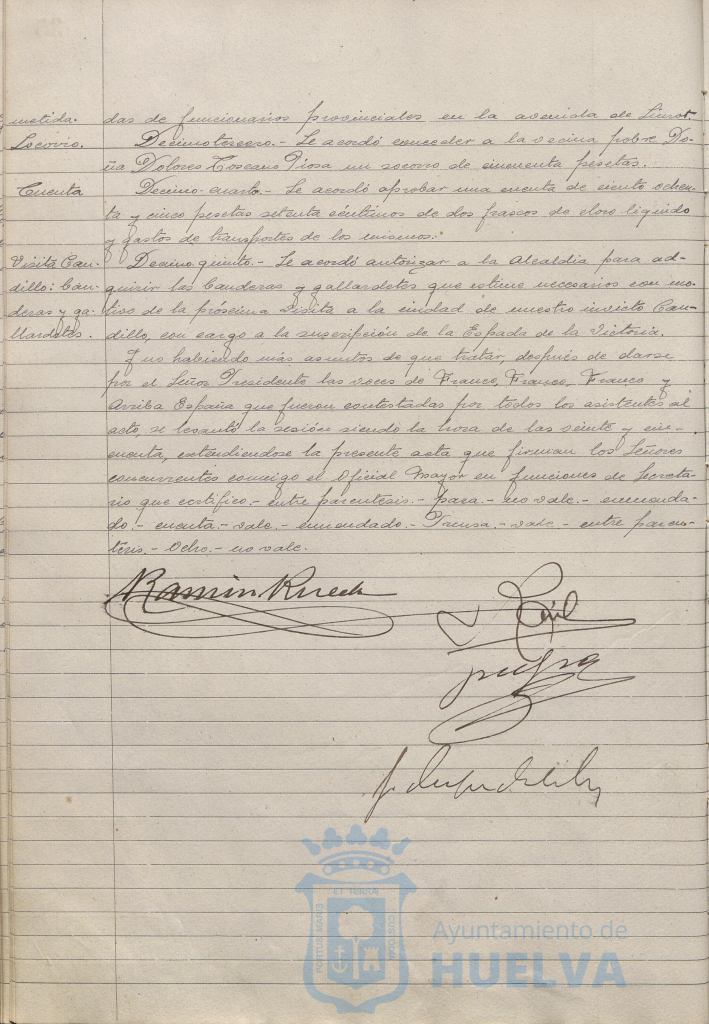 metida. das de funcionarios provinciales en la avenida de
Socorro. Decimotercero.- Se acordó conceder a la vecina pobre Do-
ña Dolores Toscano Piosa un socorro de cincuenta pesetas.
Cuenta Decimo-cuarto.- Se acordó aprobar una cuenta de ciento ochen-
ta y cinco pesetas setenta céntimos de dos frascos de cloro liquido
y gastos de transportes de los mismos.-
Visita Cau- Decimo quinto.- Se acordó autorizar a la Alcaldia para ad-
dillo: ban- quirir las banderas y gallardetes que estime necesarios con mo-
deras y ga- tivo de la próscima visita a la ciudad de nuestro invicto Cau-
llardetes. dillo, con cargo a la suscripción de la Espada de la Victoria.
Y no habiendo más asuntos de que tratar, después de darse
por el Señor Presidente las voces de Franco, Franco, Franco y
Arriba España que fueron contestadas por todos los asistentes al
acto, se levantó la sesión siendo la hora de las veinte y cin-
cuenta, extendiendose la presente acta que firman los Señores
concurrentes conmigo el Oficial Mayor en funciones de Secreta-
rio que certifico.- entre parentesis.- para.- no vale.- enmenda-
do.- cuenta.- vale.- enmendado.- vale.- entre paren-
tesis.- Ocho.- no vale.
PORTUS MARIS
ET TERRÆ
CUSTODIA
Ayuntamiento de
HUELVA